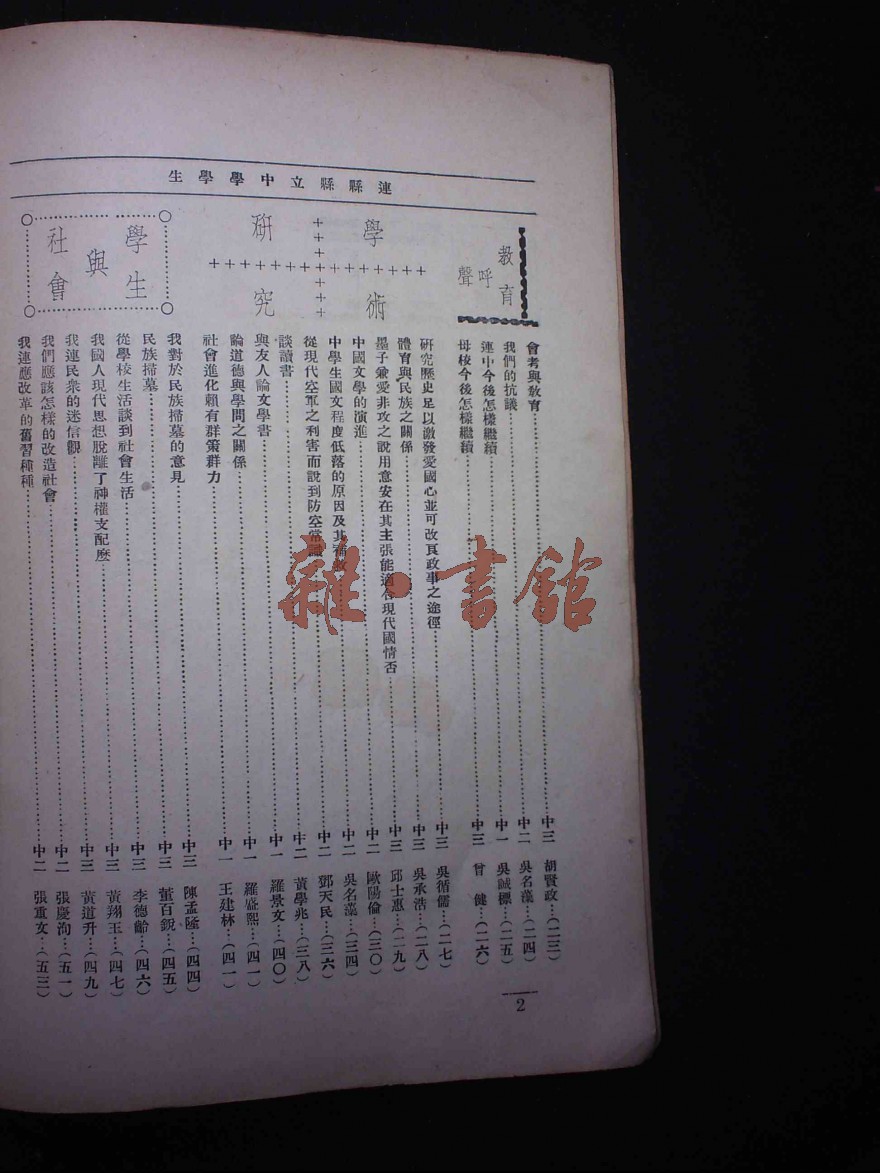 連縣縣立中學學生
教育呼聲
會考與敎育……中三 胡賢政…(二三)
我們的抗議……中二 吳名漢…(二四)
連中今後怎樣繼續……中一 吳誠標…(二五)
母校今後怎樣繼續……中三 曾健…(二六)
學術研究
研究歷史足以激發愛國心並可改良政事之途徑……中三 吳循儒…(二七)
體育與民族之關係……中三 吳承浩…(二八)
墨子兼愛非攻之說用意安在其主張能適合現代國情否……中三 邱士惠…(二九)
中國文學的演進……中二 歐陽倫…(三〇)
中學生國文程度低落的原因及其補救……中二 吳名漢…(三四)
從現代空軍之利害而說到防空常識……中二 鄧天民…(三六)
談讀書……中二 黃學兆…(三八)
與友人論文學書……中一 羅景文…(四〇)
論道德與學問之關係……中一 羅盛熙…(四一)
社會進化賴有群策群力……中一 王建林…(四一)
學生與社會
我對於民族掃墓的意見……中三 陳孟隆…(四四)
民族掃墓……中三 董百鋭…(四五)
從學校生活談到社會生活……中三 李德齡…(四六)
我國人現代思想脫離了神權支配麽……中三 黃翔王…(四七)
我連民衆的迷信觀……中三 黃道升…(四九)
我們應該怎樣的改造社會……中二 張慶洵…(五一)
我連應改革的舊習種種……中二 張重文…(五三)
2
雜·書館